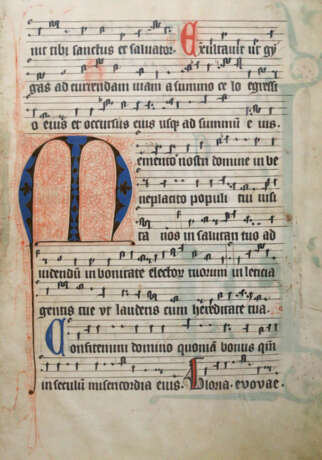 niet tibi sanctus et salvator. Exultavit ut gy
gas ad currendam viam a summo celo egressi
o eius et occursus eius usq ad summū e ius.
Memento nostri domine in be
neplacito populi tui visi
ta nos in salutari tuo ad
videndū in bonitate electoꝝ tuorum in leticia
gentis tue ut lauderis cum hereditate tua.
Confitemini domino quoniā bonus qm̄
in seculū misericordia eius. Gloria. evovae.